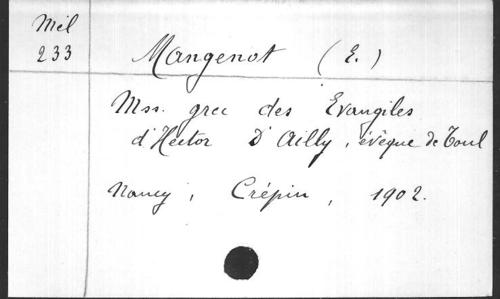 Mel
233
Mangenot (E.)
Mss. grec des Evangiles
d'Hector D'Ailly, évêque de Toul
Nancy, Crépin, 1902.